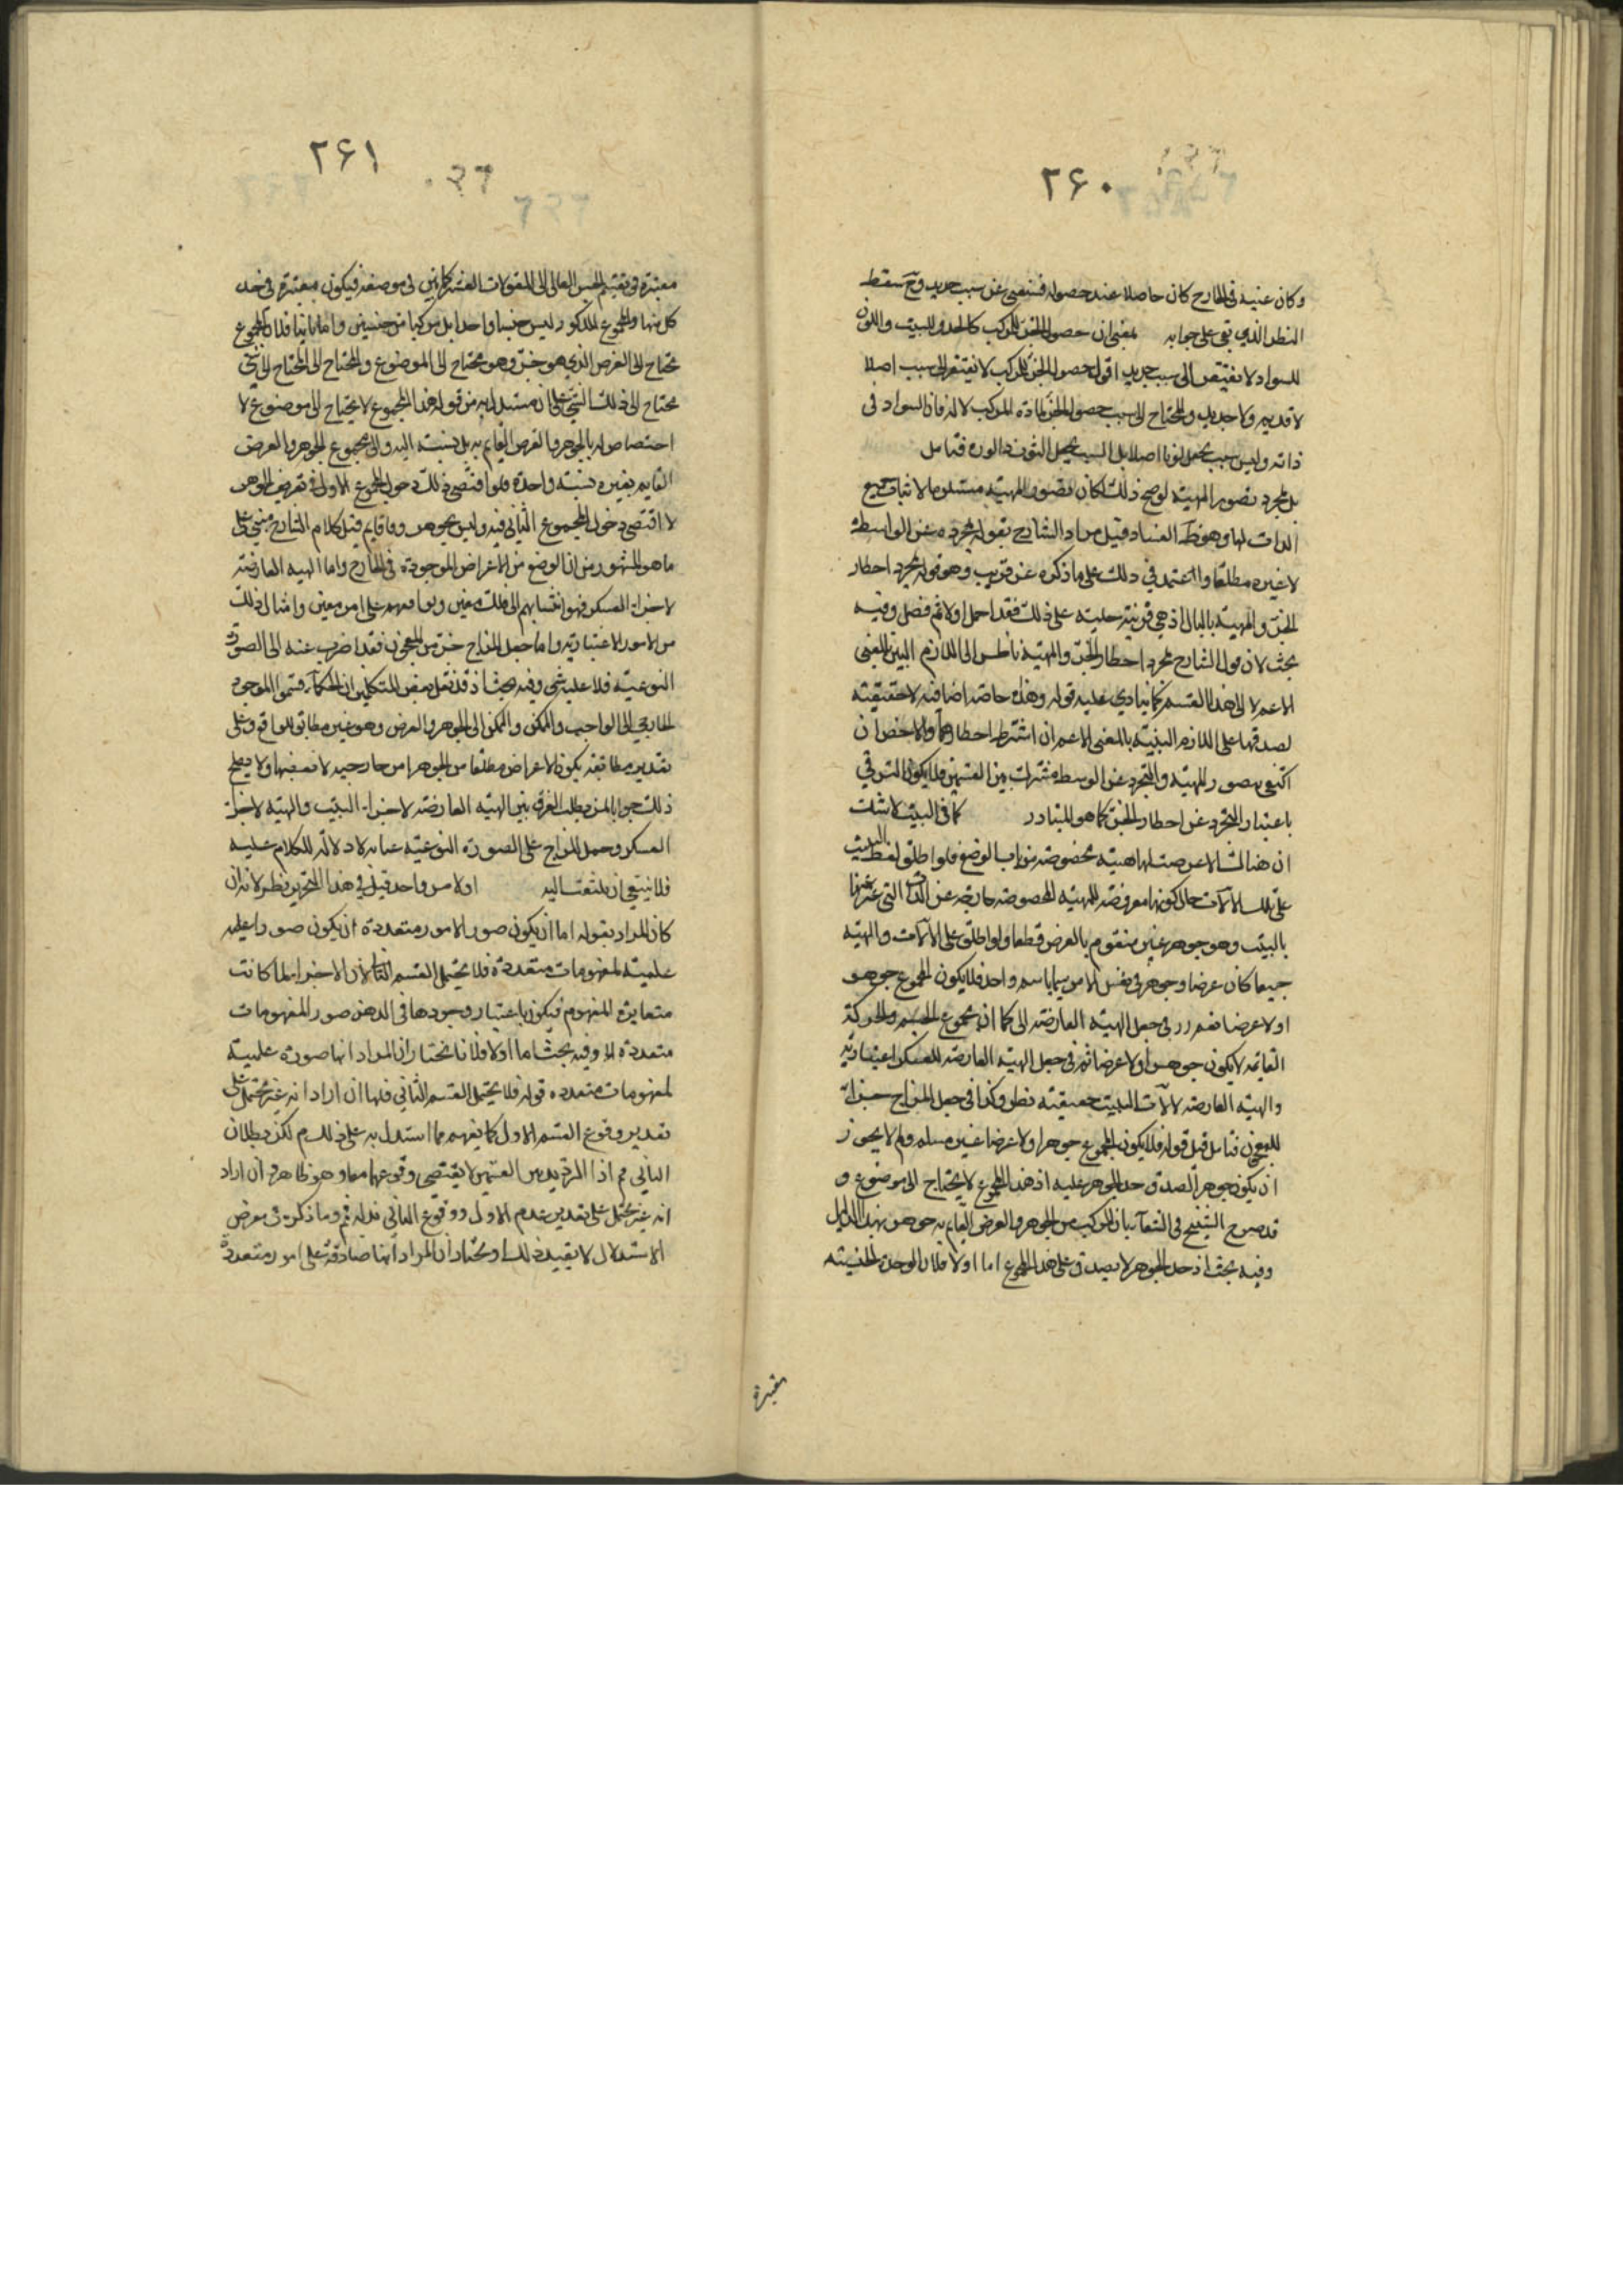 ۲۶۰
وكان عنيه في الخارج كان حاصلا عند حصوله فيستغنى عن سبب جديد وح سقط
النظر الذي بقي على جوابه بمعنى ان حصول الجزء للمركب كالجدر للبيت واللون
للسواد لا يفتقر الى سبب جديد اقول حصول الجزء للمركب لا يفتقر الى سبب اصلا
لا قديم ولا جديد والمحتاج الى سبب حصول الجزء لمادة المركب لا له فان السواد في
ذاته وليس سبب يجعل لونا اصلا بل السبب يجعل الثوب ذا لون فتامل
بل مجرد تصور المهية لوضح ذلك لكان تصور المهية مستلزما لاثبات جميع
الذات لها وهو ظ الفساد قيل مراد الشارح بقوله مجرده عن الواسطة
لا غيره مطلقا واعتمد في ذلك على ما ذكره عن قريب وهو قوله مجرد احطار
الجزء والمهية بالبال اذ هي قرينة جلية على ذلك فقد احمل اولا ثم فصل وفيه
بحث لان قول الشارح مجرد احطار الجزء والمهية ناظر الى اللازم البين بالمعنى
الاعم لا الى هذا القسم كما ينادي عليه قوله وهذه خاصة اضافية لا حقيقية
لصدقها على اللازم البينة بالمعنى الاعم ان اشترط احطارهما والاخص ان
اكتفى بتصور المهية والتجرد عن الوسط مشترك بين القسمين فلا يكون الترقي
باعتبار التجرد عن احطار الجزء كما هو المتبادر كما في البيت لا شك
ان هنا آلات عرضت لها هيئة مخصوصة من باب الوضع فلو اطلق لفظ البيت
على تلك الآلات حال كونها معروضة للهيئة المخصوصة خارجة عن الذات التي عبر عنها
بالبيت وهو جوهر غير متقوم بالعرض قطعا ولو اطلق على الآلات والهيئة
جميعا كان عرضا وجوهر في نفس الامر سميا باسم واحد فلا يكون المجموع جوهر
اولا عرضا نعم ررر في جعل الهيئة العارضة الى كما ان مجموع الجسم والحركة
القائمة لا يكون جوهرا ولا عرضا ثم في جعل الهيئة العارضة للعسكر اعتبارية
والهيئة العارضة لآلات البيت حقيقية نظر وكذا في جعل المزاج جزأ
للمعجون فتامل قيل قوله فلا يكون المجموع جوهرا ولا عرضا غير مسلم ولم لا يجوز
ان يكون جوهرا لصدق حد الجوهر عليه اذ هذا المجموع لا يحتاج الى موضوع و
قد صرح الشيخ في الشفآ بان المركب من الجوهر والعرض القائم به جوهر بهذا الدليل
وفيه بحث اذ حد الجوهر لا يصدق على هذا المجموع اما اولا فلان الوحدة الجنسية
معتبرة
۲۶۱
معتبرة في تقسيم الجنس العالى الى المقولات العشر كما بين في موضعه فيكون معتبرة في حد
كل منها والمجموع المذكور ليس جنسا واحدا بل مركبا من جنسين واما ثانيا فلان المجموع
محتاج الى العرض الذي هو جزء وهو محتاج الى الموضوع والمحتاج الى المحتاج الى شيء
محتاج الى ذلك الشيء على ان مستدل به من قوله هذا المجموع لا يحتاج الى موضوع لا
اختصاص له بالجوهر والعرض القائم به بل نسبته اليه والى مجموع الجوهر والعرض
القايم بغيره نسبة واحدة فلو اقتضى ذلك دخول المجموع الاول في تعريف الجوهر
لاقتضى دخول المجموع الثاني فيه وليس بجوهر وفاقا ثم قيل كلام الشارح مبني على
ما هو المشهور من ان الوضع من الاعراض الموجودة في الخارج واما الهيئة العارضة
لاجزاء العسكر فهو انتسابهم الى ملك معين وتوافقهم على امر معين وامثال ذلك
من الامور الاعتبارية واما جعل المزاج جزء من المعجون فقد اضرب عنه الى الصورة
النوعية فلا عليه شي وفيه بحث اذ قد نقل بعض المتكلمين ان الحكمآء قسموا الموجود
الخارجي الى الواجب والممكن والممكن الى الجوهر والعرض وهو غير مطابق للواقع وعلى
تقدير مطابقته يكون الاعراض مطلقا من الجوهر امر خارجيه لا بعضها ولا يصلح
ذلك جوابا لمن يطلب الفرق بين الهيئة العارضة لاجزاء البيت والهيئة لاجزاء
العسكر وحمل المزاج على الصورة النوعية عبارة لا دلالة للكلام عليه
فلا ينبغي ان يلتفت اليه اولا من واحد قيل في هذا التحرير نظر لانه ان
كان المراد بقوله اما ان يكون صور الامور متعددة ان يكون صورا علميه
علمية لمفهومات متعددة فلا يحتمل القسم الثاني لان الاجزاء لما كانت
متغايرة المفهوم فيكون باعتبار وجودها في الذهن صور المفهومات
متعددة الخ وفيه بحث اما اولا فلانا نختار ان المراد انها صورة علمية
لمفهومات متعدده قوله فلا يحتمل القسم الثاني قلنا ان اراد انه غير محتمل على
تقدير وقوع القسم الاول كما يفهم مما استدل به على ذلك م لكن بطلان
التالي مم اذ الترديد بين القسمين لا يقتضي وقوعهما معا وهو ظاهر وان اراد
انه غير محتمل على تقدير عدم الاول ووقوع الثاني فذلك مم وما ذكره في معرض
الاستدلال لا يفيد ذلك او نختار ان المراد انها صادقة على امور متعددة